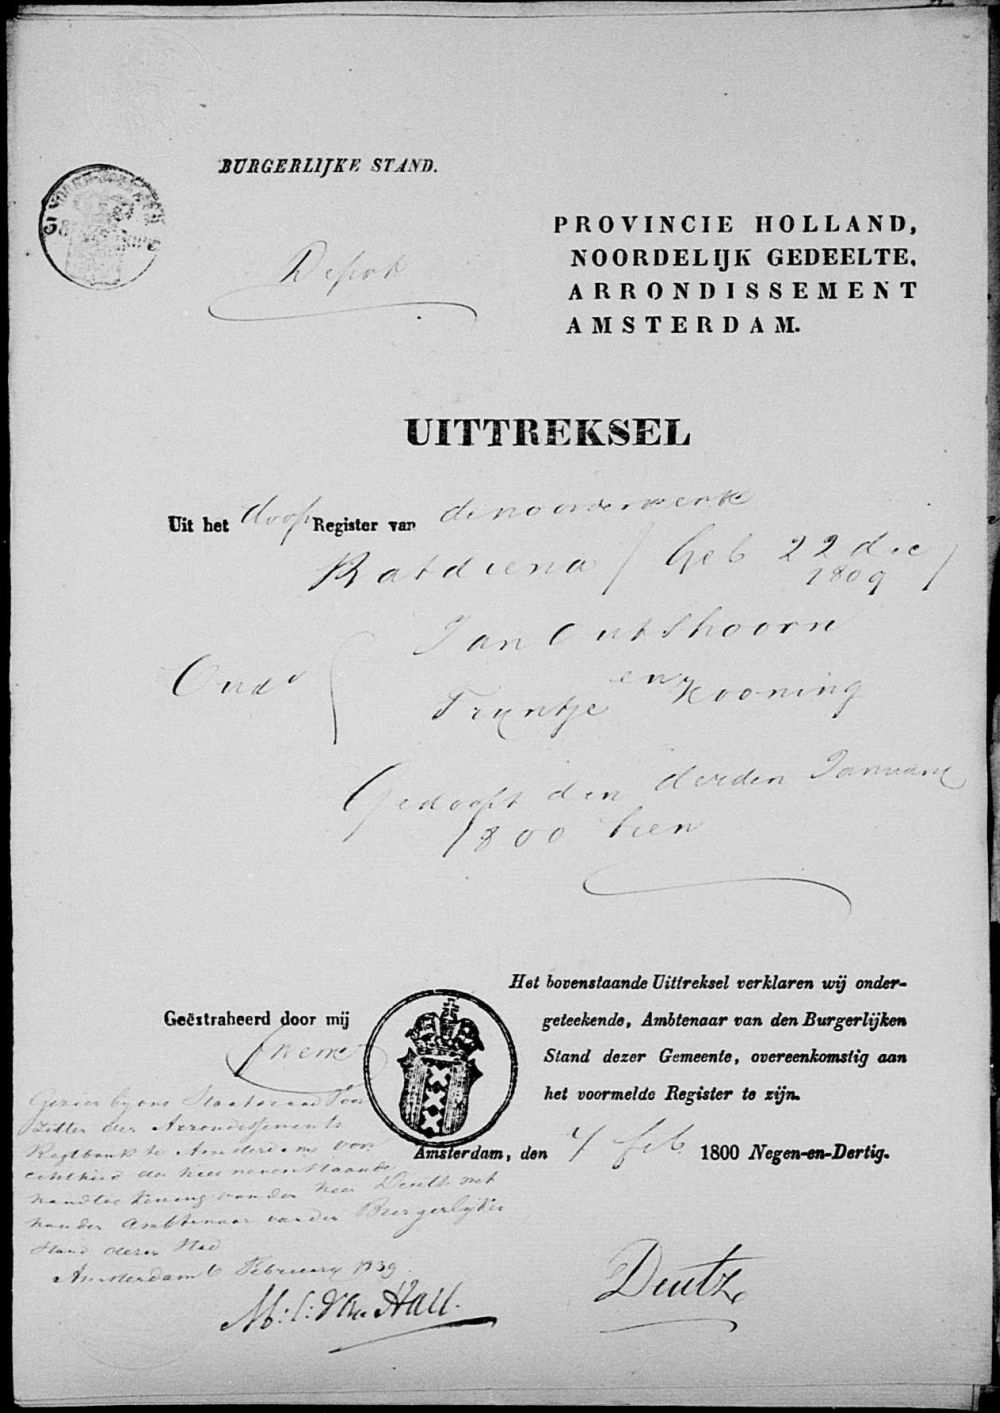 BURGERLIJKE STAND.
PROVINCIE HOLLAND,
NOORDELIJK GEDEELTE,
ARRONDISSEMENT
AMSTERDAM.
UITTREKSEL
Uit het doop Register van de noorderkerk
Batdiena / Geb 22 dec
1809 /
Jan Outshoorn
Oud^s
en
Tryntje Kooning
Gedoopt den derden Januarij
1800 tien
Het bovenstaande Uittreksel verklaren wij onder-
Geëxtraheerd door mij
geteekende, Ambtenaar van den Burgerlijken
Stand dezer Gemeente, overeenkomstig aan
het voormelde Register te zijn.
Amsterdam, den 4 feb 1800 Negen-en-Dertig.
Gezien by ons Staatsraad Voor
zitter der Arrondissements
Regtbank te Amsterdam voor
echtheid de hier nevenstaande
handteekening van den heer Deutz met
Ambtenaar van den Burgerlijken
Stand dezer Stad
Amsterdam 6 February 1839.
M: C: Van Hall.
Deutz